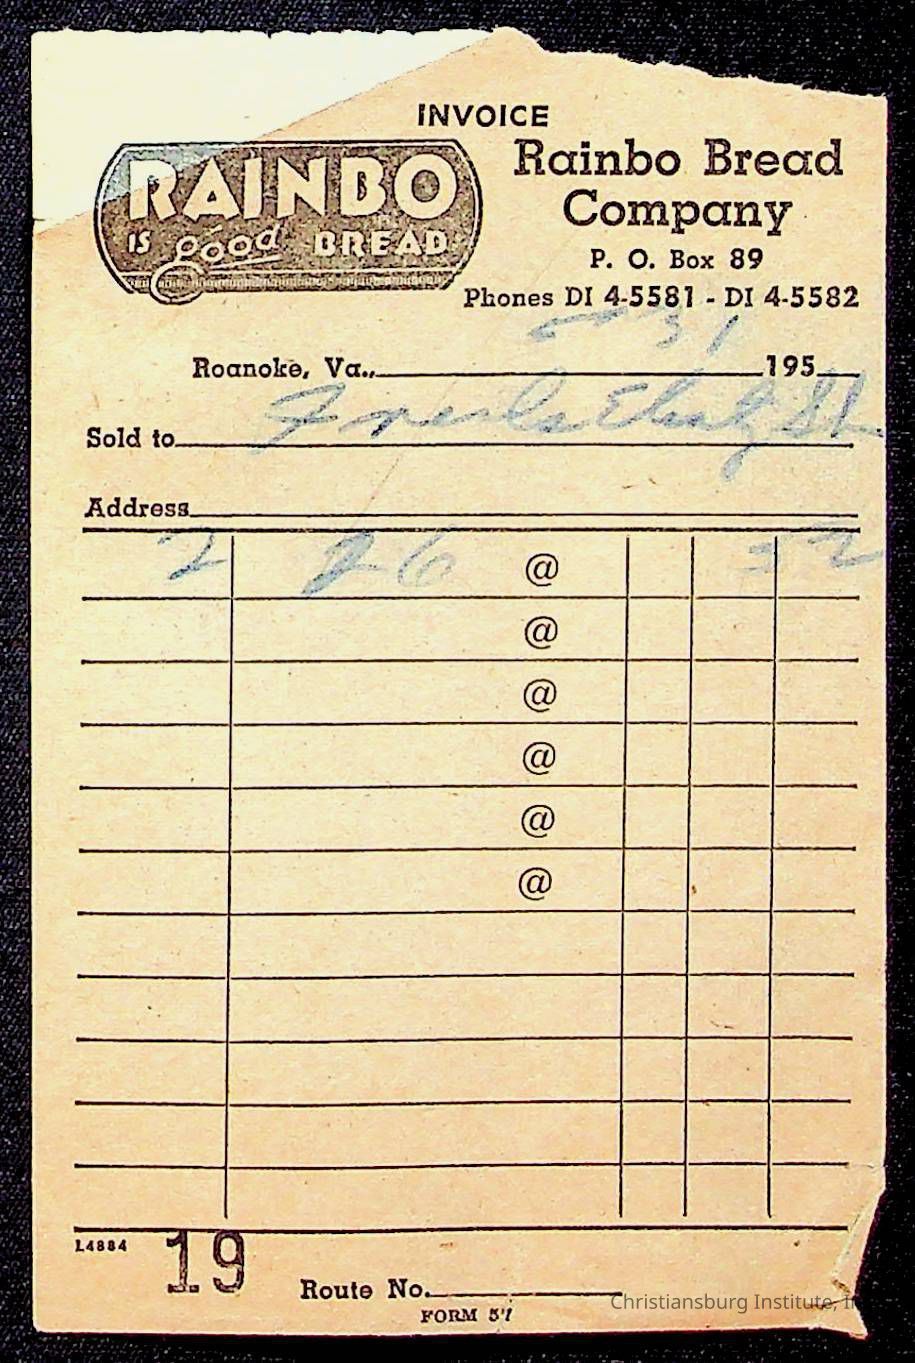 INVOICE
RAINBO
IS good BREAD
Rainbo Bread
Company
P. O. Box 89
Phones DI 4-5581 - DI 4-5582
31
Roanoke, Va., 195
Sold to
Address
2 26 @ 52
@
@
@
@
@
L4884
19
Route No.
FORM 57
Christiansburg Institute,